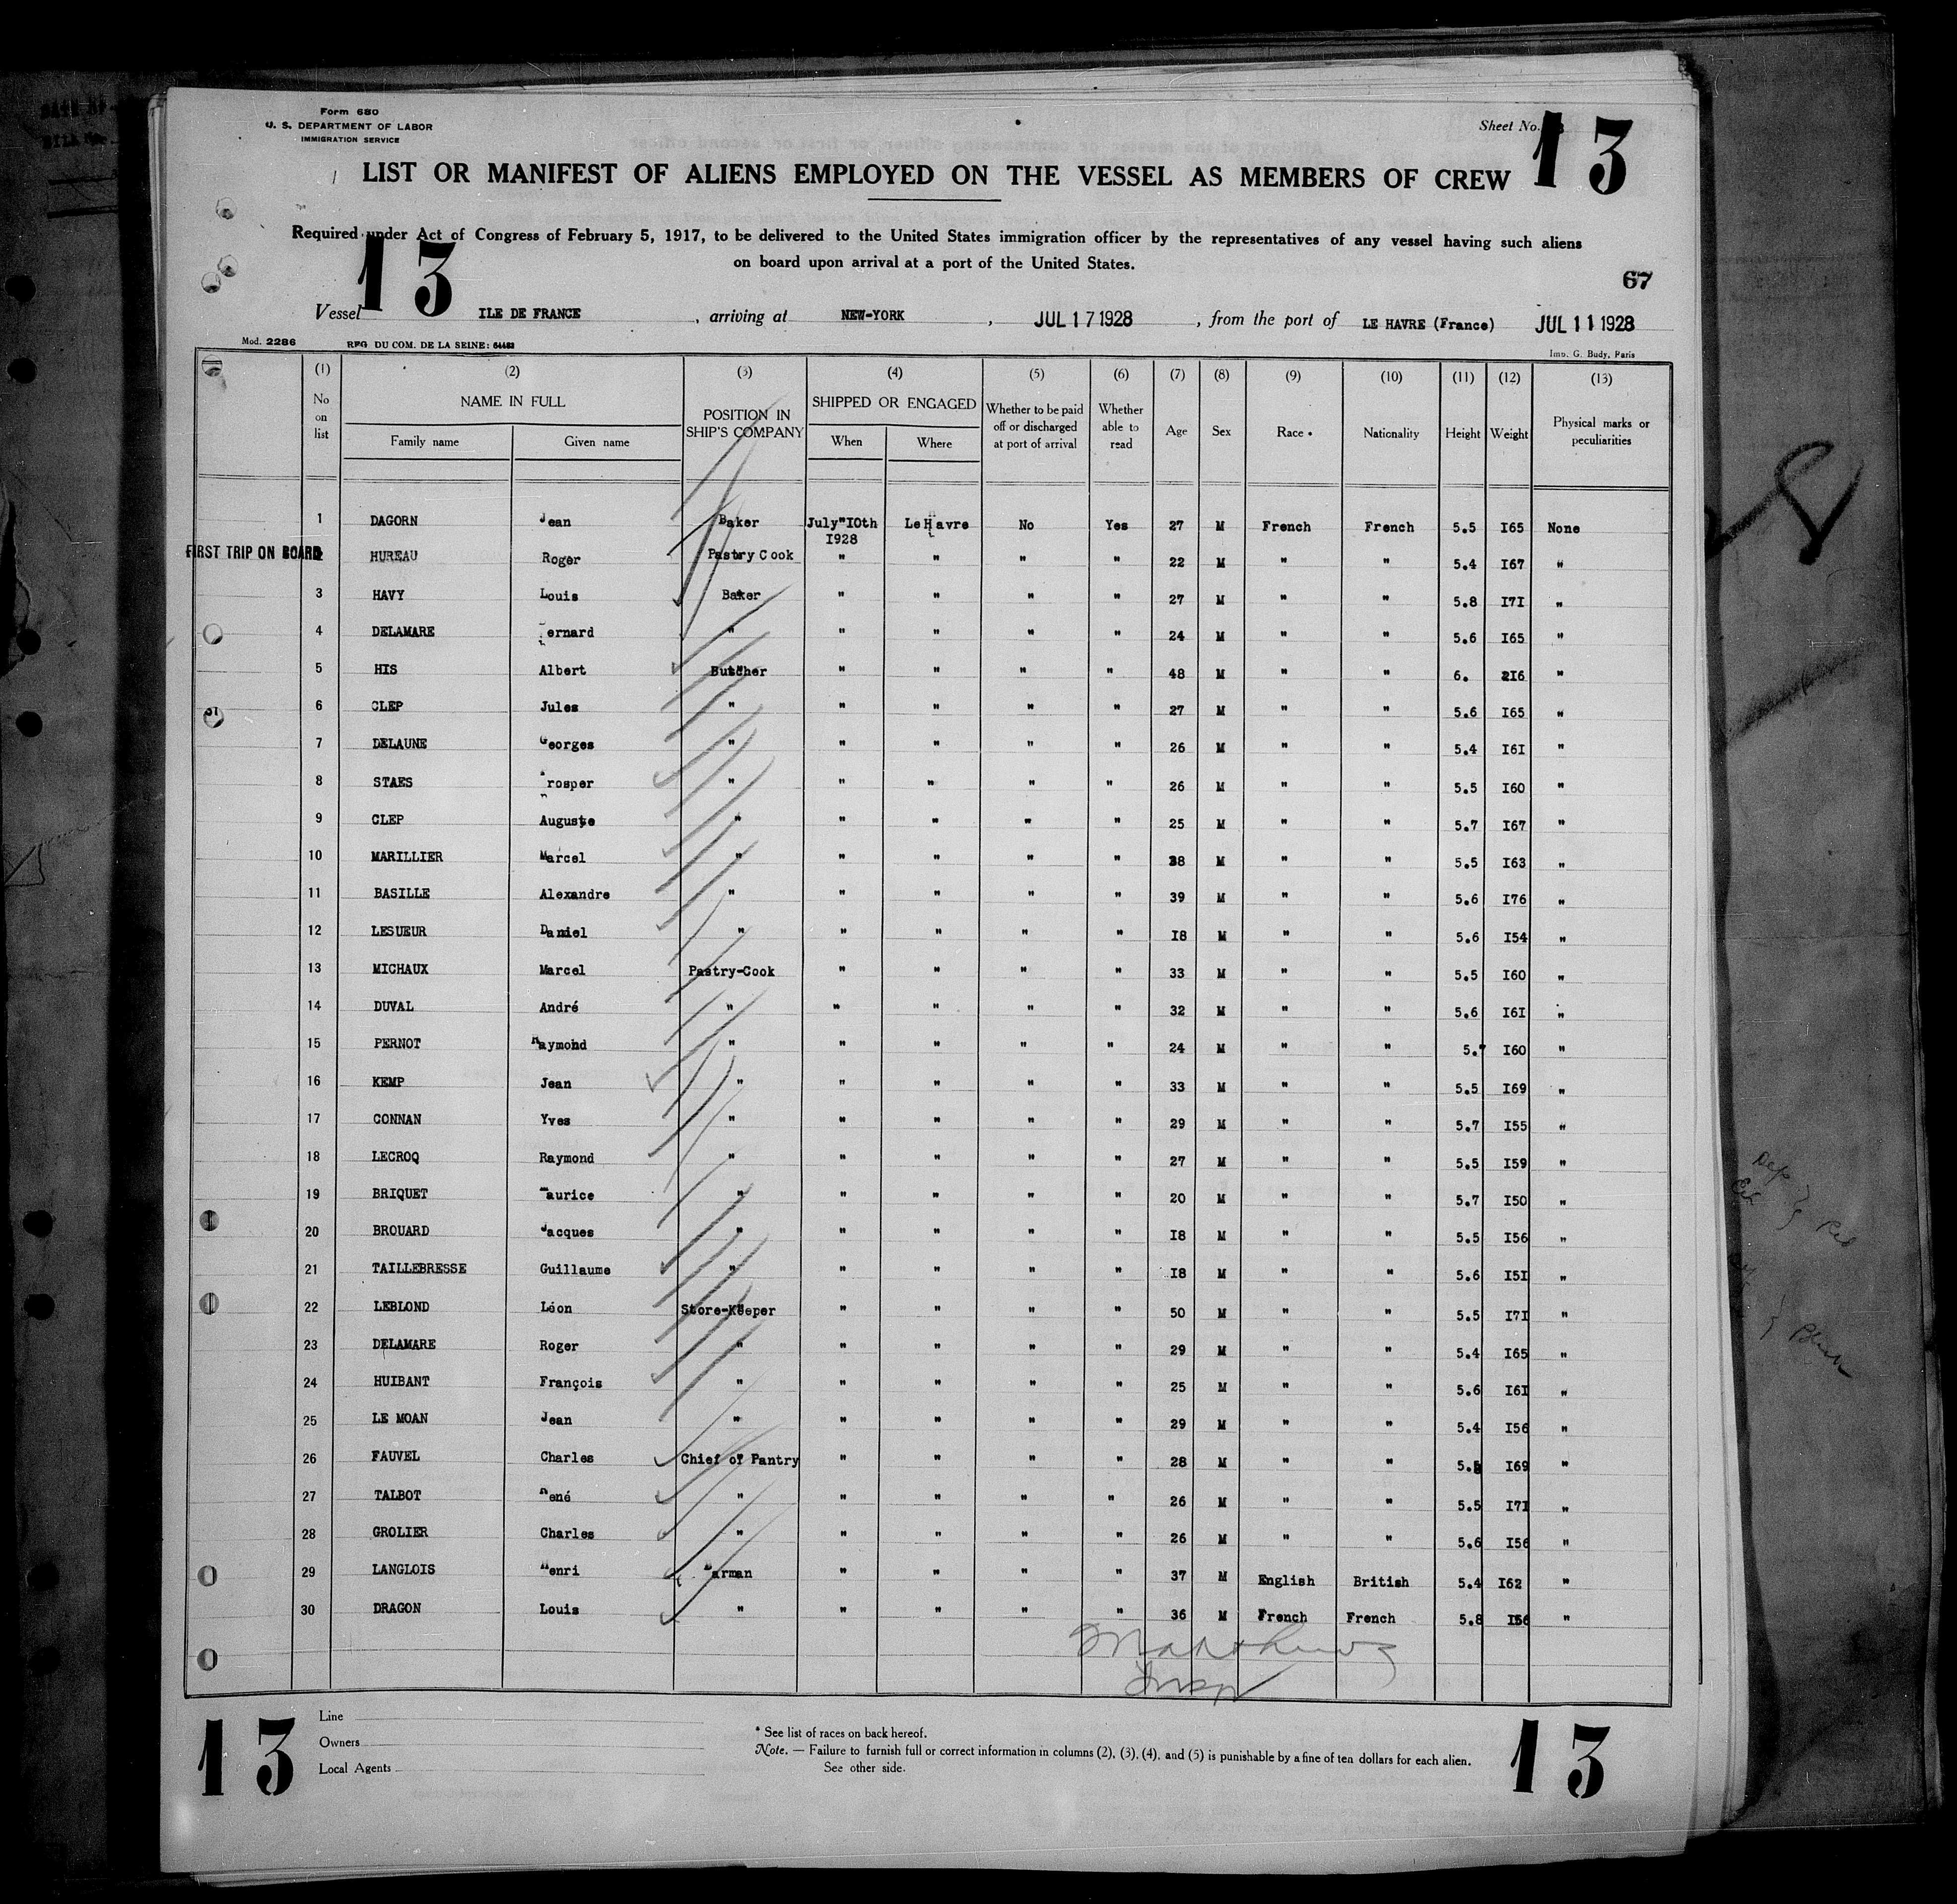 Form 680
U. S. DEPARTMENT OF LABOR
IMMIGRATION SERVICE
Sheet No.
13
LIST OR MANIFEST OF ALIENS EMPLOYED ON THE VESSEL AS MEMBERS OF CREW
Required under Act of Congress of February 5, 1917, to be delivered to the United States immigration officer by the representatives of any vessel having such aliens
on board upon arrival at a port of the United States.
13
67
Vessel ILE DE FRANCE , arriving at NEW-YORK , JUL 17 1928 , from the port of LE HAVRE (France) JUL 11 1928
Mod. 2286 RFG DU COM. DE LA SEINE: 64483 Imp. G. Budy, Paris
(1) (2) (3) (4) (5) (6) (7) (8) (9) (10) (11) (12) (13)
No on list NAME IN FULL Family name Given name POSITION IN SHIP'S COMPANY SHIPPED OR ENGAGED When Where Whether to be paid off or discharged at port of arrival Whether able to read Age Sex Race * Nationality Height Weight Physical marks or peculiarities
1 DAGORN Jean Baker July 10th 1928 Le Havre No Yes 27 M French French 5.5 165 None
FIRST TRIP ON BOARD 2 HUREAU Roger Pastry Cook " " " " 22 M " " 5.4 167 "
3 HAVY Louis Baker " " " " 27 M " " 5.8 171 "
4 DELAMARE Bernard " " " " " 24 M " " 5.6 165 "
5 HIS Albert Butcher " " " " 48 M " " 6. 216 "
6 CLEP Jules " " " " " 27 M " " 5.6 165 "
7 DELAUNE Georges " " " " " 26 M " " 5.4 161 "
8 STAES Prosper " " " " " 26 M " " 5.5 160 "
9 CLEP Auguste " " " " " 25 M " " 5.7 167 "
10 MARILLIER Marcel " " " " " 38 M " " 5.5 163 "
11 BASILLE Alexandre " " " " " 39 M " " 5.6 176 "
12 LESUEUR Daniel " " " " " 18 M " " 5.6 154 "
13 MICHAUX Marcel Pastry-Cook " " " " 33 M " " 5.5 160 "
14 DUVAL André " " " " " 32 M " " 5.6 161 "
15 PERNOT Raymond " " " " " 24 M " " 5.7 160 "
16 KEMP Jean " " " " " 33 M " " 5.5 169 "
17 CONNAN Yves " " " " " 29 M " " 5.7 155 "
18 LECROQ Raymond " " " " " 27 M " " 5.5 159 "
19 BRIQUET Maurice " " " " " 20 M " " 5.7 150 "
20 BROUARD Jacques " " " " " 18 M " " 5.5 156 "
21 TAILLEBRESSE Guillaume " " " " " 18 M " " 5.6 151 "
22 LEBLOND Léon Store-Keeper " " " " 50 M " " 5.5 171 "
23 DELAMARE Roger " " " " " 29 M " " 5.4 165 "
24 HUIBANT François " " " " " 25 M " " 5.6 161 "
25 LE MOAN Jean " " " " " 29 M " " 5.4 156 "
26 FAUVEL Charles Chief of Pantry " " " " 28 M " " 5.5 169 "
27 TALBOT René " " " " " 26 M " " 5.5 171 "
28 GROLIER Charles " " " " " 26 M " " 5.6 156 "
29 LANGLOIS Henri Barman " " " " 37 M English British 5.4 162 "
30 DRAGON Louis " " " " " 36 M French French 5.8 156 "
Matthews
Insp
13
Line
Owners
Local Agents
* See list of races on back hereof.
Note. — Failure to furnish full or correct information in columns (2), (3), (4), and (5) is punishable by a fine of ten dollars for each alien.
See other side.
13